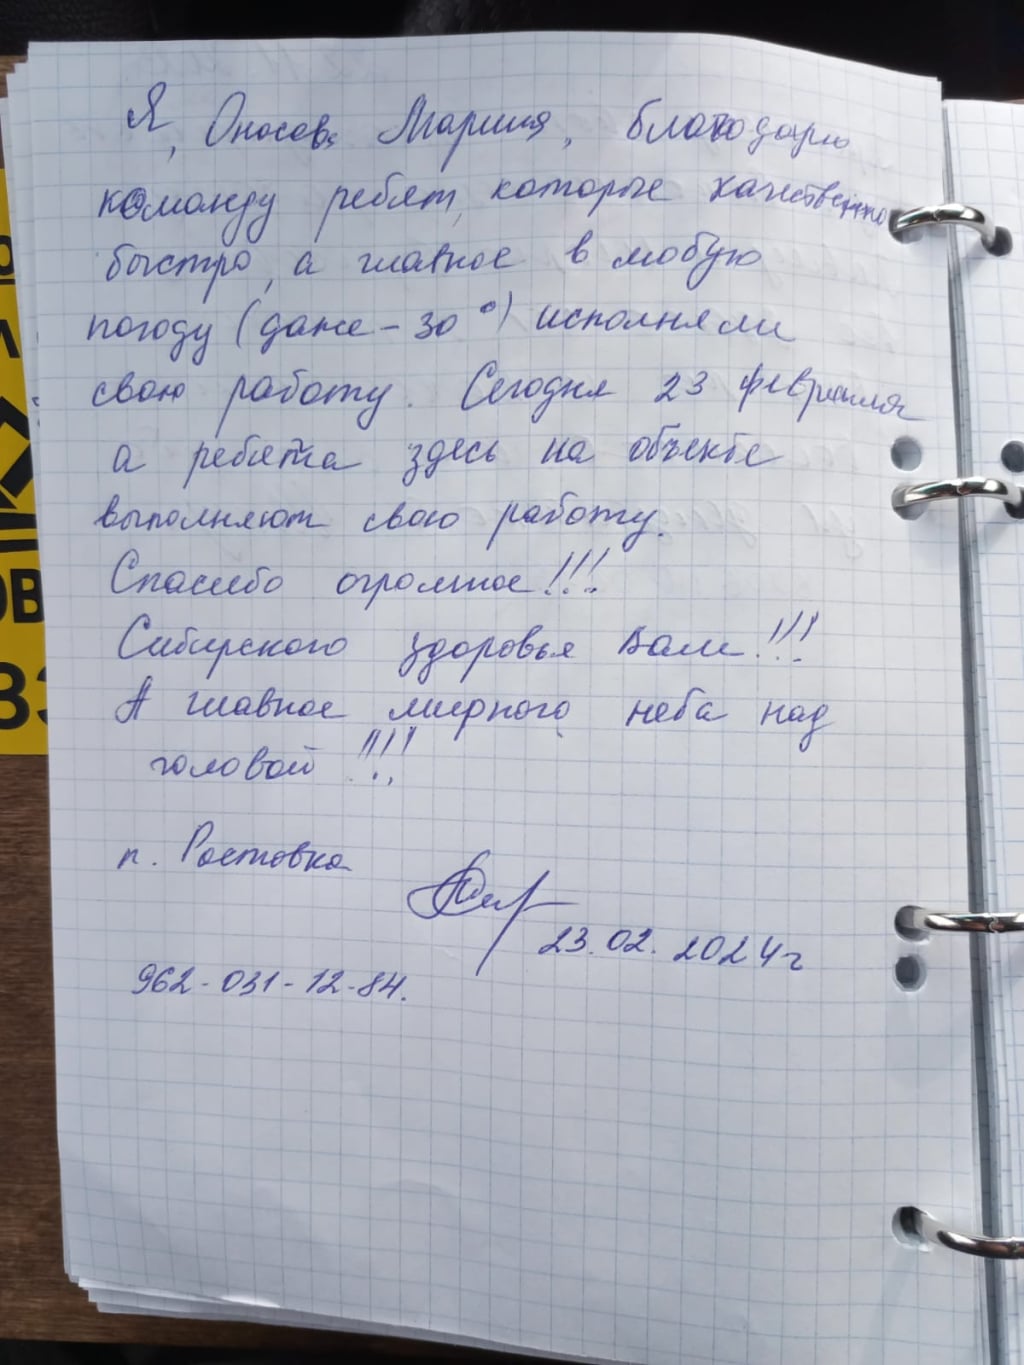 Я, Оносова Марина, благодарю
команду ребят, которые качественно
быстро, а главное в любую
погоду (даже -30°) исполняли
свою работу. Сегодня 23 февраля
а ребята здесь на объекте
выполняют свою работу.
Спасибо огромное!!!
Сибирского здоровья Вам!!!
А главное мирного неба над
головой!!!
п. Ростовка
23.02.2024г
962-031-12-84.